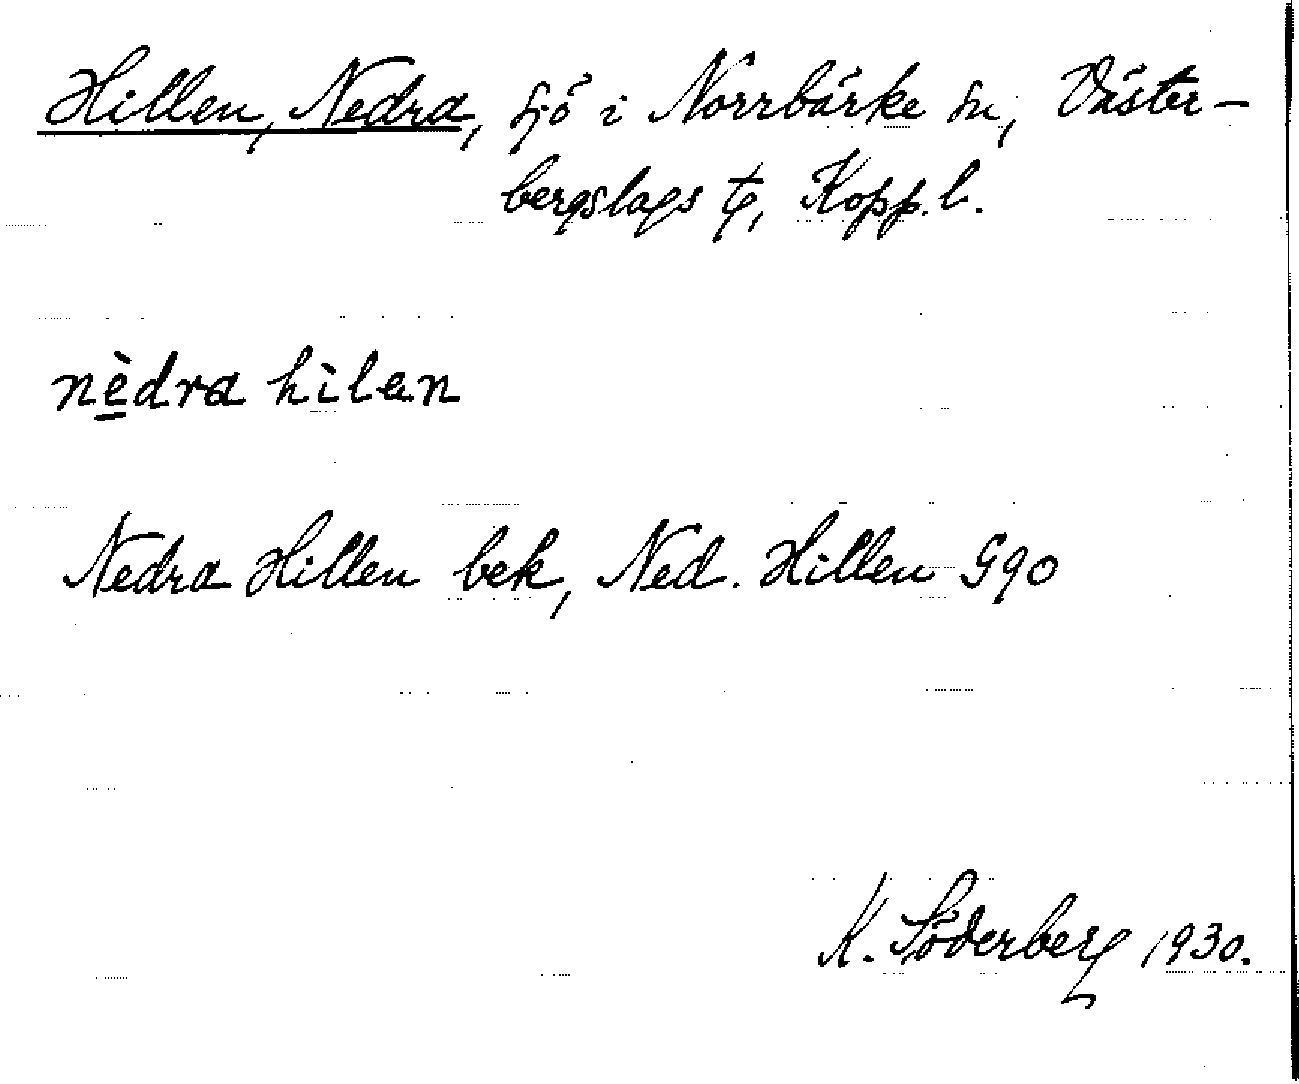 Hillen, Nedra, sjö i Norrbärke sn, Väster-
bergslags tg, Kopp. l.
nèdra hìlan
Nedra Hillen bek, Ned. Hillen G90
K. Söderberg 1930.